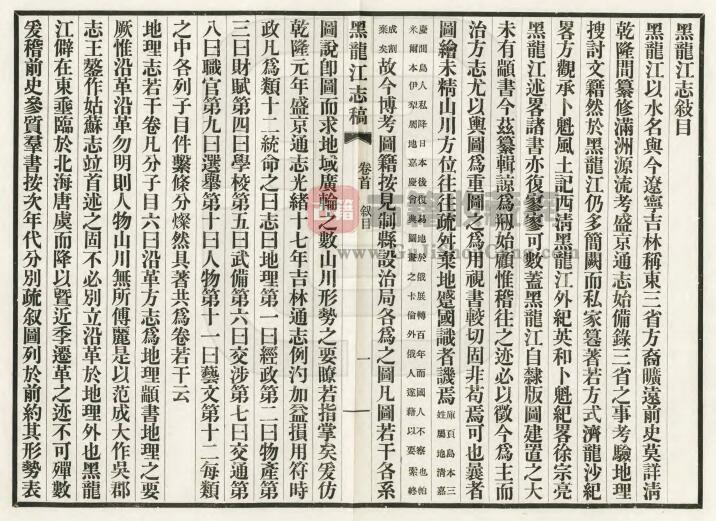 黑龍江志敍目
黑龍江以水名與今遼寧吉林稱東三省方裔曠遠前史莫詳清
乾隆間纂修滿洲源流考盛京通志始備錄三省之事考驗地理
搜討文籍然於黑龍江仍多簡闕而私家篹著若方式濟龍沙紀
畧方觀承卜魁風土記西清黑龍江外紀英和卜魁紀畧徐宗亮
黑龍江述畧諸書亦復寥寥可數蓋黑龍江自隸版圖建置之大
未有顓書今茲纂輯諒爲剏始顧惟稽往之迹必以徵今爲主而
治方志尤以輿圖爲重圖之爲用視書較切固非苟焉可也曩者
圖繪未精山川方位往往疏舛棄地蹙國識者譏焉庫頁島本三姓屬地淸嘉
慶間島人私降日本後復易地於俄展轉百年而國人不察也帕米爾本伊犂屬地嘉慶會典圖畫之卡倫外俄人遂藉以要索終
成割棄矣故今博考圖籍按見制縣設治局各爲之圖凡圖若干各系
黑龍江志稿
卷首
敍目
一
圖說卽圖而求地域廣輪之數山川形勢之要瞭若指掌矣爰仿
乾隆元年盛京通志光緒十七年吉林通志例汋加益損用符時
政凡爲類十二統命之曰志曰地理第一曰經政第二曰物產第
三曰財賦第四曰學校第五曰武備第六曰交涉第七曰交通第
八曰職官第九曰選舉第十曰人物第十一曰藝文第十二每類
之中各列子目件繫條分燦然具著共爲卷若干云
地理志若干卷凡分子目六曰沿革方志爲地理顓書地理之要
厥惟沿革沿革勿明則人物山川無所傅麗是以范成大作吳郡
志王鏊作姑蘇志竝首述之固不必別立沿革於地理外也黑龍
江僻在東垂臨於北海唐虞而降以曁近季遷革之迹不可殫數
爰稽前史參質羣書按次年代分別疏敍圖列於前約其形勢表